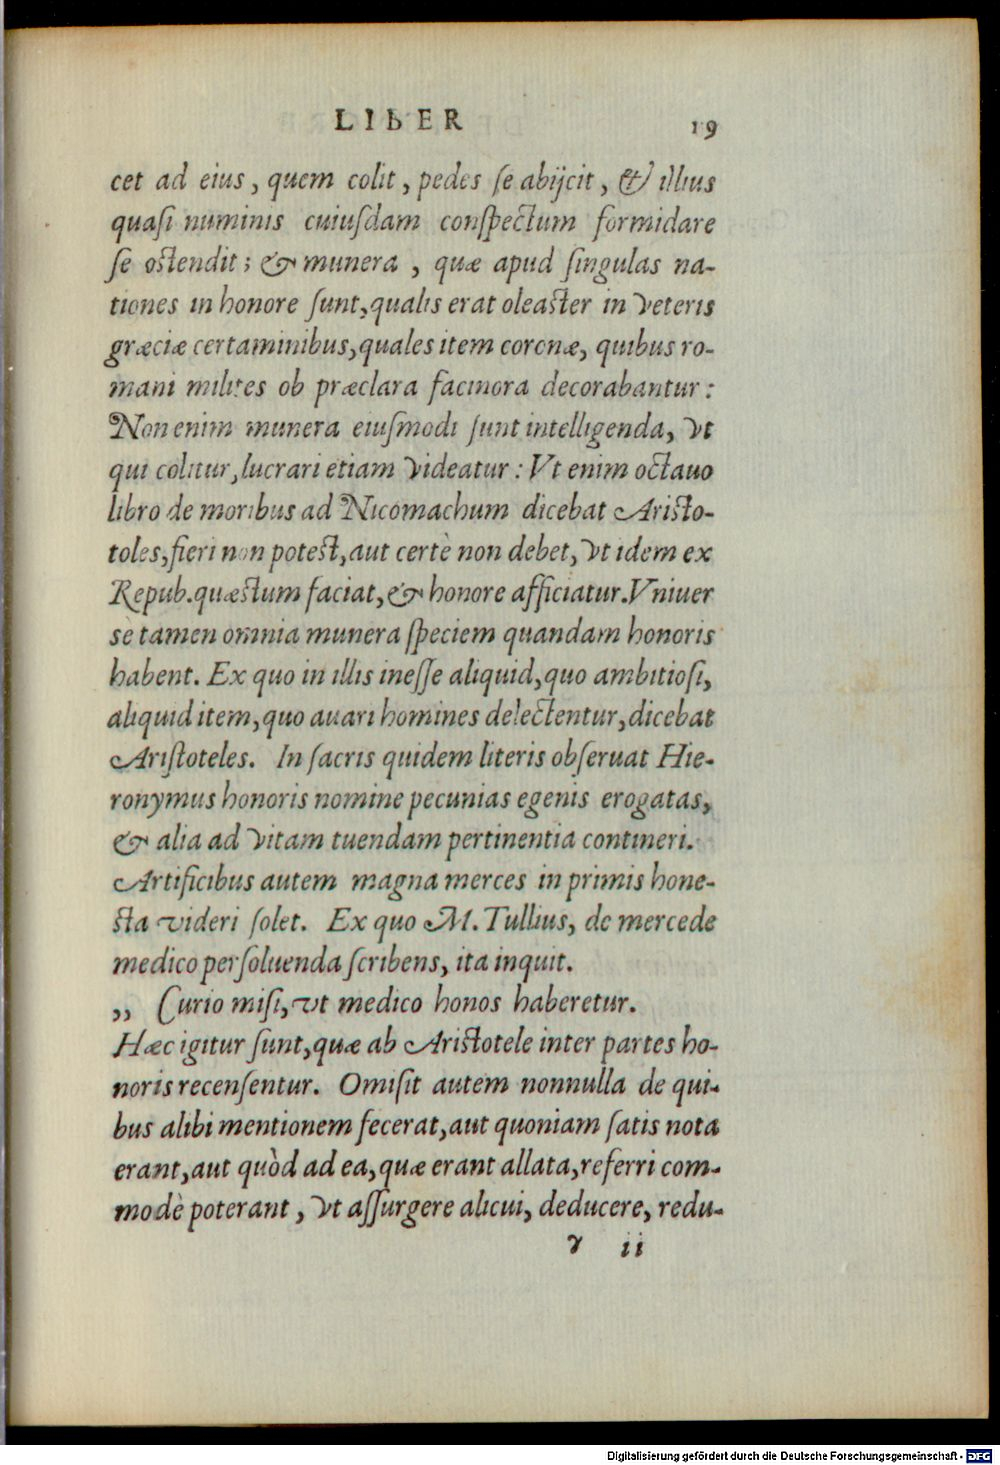 LIBER 19
cet ad eius, quem colit, pedes ſe abijcit, & illius
quaſi numinis cuiuſdam conſpectum formidare
ſe oſtendit; & munera, quæ apud ſingulas na-
tiones in honore ſunt, qualis erat oleaſter in veteris
græciæ certaminibus, quales item coronæ, quibus ro-
mani milites ob præclara facinora decorabantur:
Non enim munera eiuſmodi ſunt intelligenda, vt
qui colitur, lucrari etiam videatur: Vt enim octauo
libro de moribus ad Nicomachum dicebat Ariſto-
toles, fieri non poteſt, aut certè non debet, vt idem ex
Repub. quæſtum faciat, & honore afficiatur. Vniuer
sè tamen omnia munera ſpeciem quandam honoris
habent. Ex quo in illis ineſſe aliquid, quo ambitioſi,
aliquid item, quo auari homines delectentur, dicebat
Ariſtoteles. In ſacris quidem literis obſeruat Hie-
ronymus honoris nomine pecunias egenis erogatas,
& alia ad vitam tuendam pertinentia contineri.
Artificibus autem magna merces in primis hone-
ſta videri ſolet. Ex quo M. Tullius, de mercede
medico perſoluenda ſcribens, ita inquit.
,, Curio miſi, vt medico honos haberetur.
Hæc igitur ſunt, quæ ab Ariſtotele inter partes ho-
noris recenſentur. Omiſit autem nonnulla de qui-
bus alibi mentionem fecerat, aut quoniam ſatis nota
erant, aut quòd ad ea, quæ erant allata, referri com-
modè poterant, vt aſſurgere alicui, deducere, redu-
γ ii
Digitalisierung gefördert durch die Deutsche Forschungsgemeinschaft - DFG